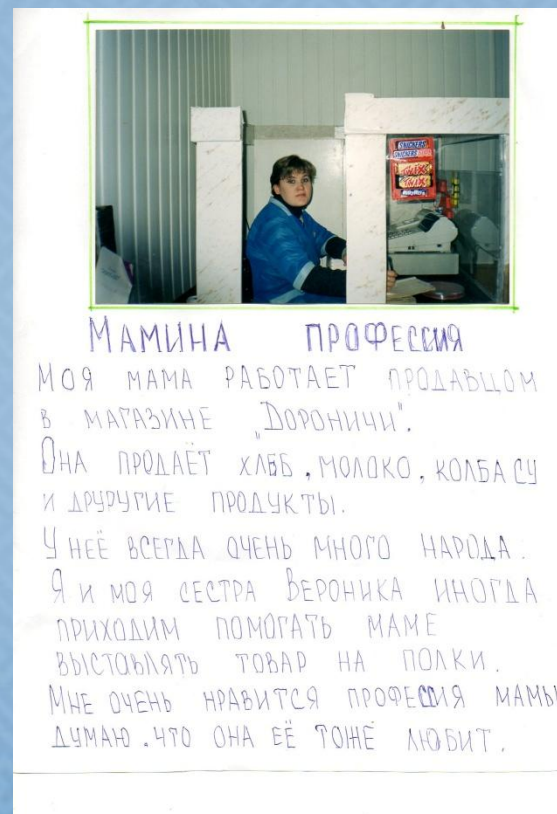 SNICKERS
SNICKERS
TWIX
TWIX
МАМИНА ПРОФЕССИЯ
МОЯ МАМА РАБОТАЕТ ПРОДАВЦОМ
В МАГАЗИНЕ „ДОРОНИЧИ".
ОНА ПРОДАЁТ ХЛЕБ, МОЛОКО, КОЛБАСУ
И ДРУРУГИЕ ПРОДУКТЫ.
У НЕЁ ВСЕГДА ОЧЕНЬ МНОГО НАРОДА.
Я И МОЯ СЕСТРА ВЕРОНИКА ИНОГДА
ПРИХОДИМ ПОМОГАТЬ МАМЕ
ВЫСТАВЛЯТЬ ТОВАР НА ПОЛКИ.
МНЕ ОЧЕНЬ НРАВИТСЯ ПРОФЕССИЯ МАМЫ
ДУМАЮ, ЧТО ОНА ЕЁ ТОЖЕ ЛЮБИТ.